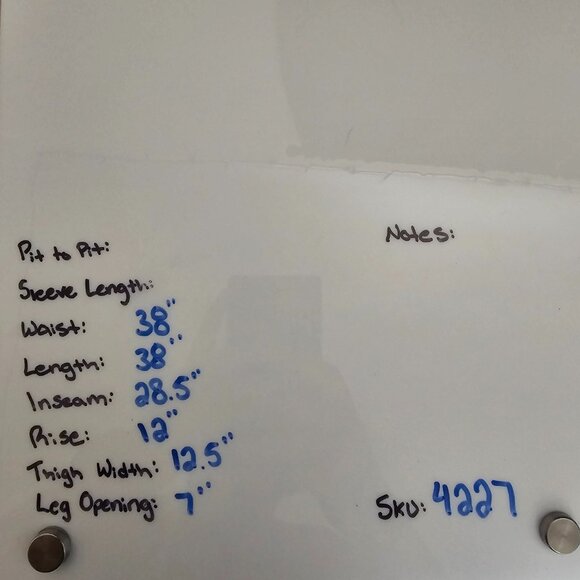 Pit to Pit:
Sleeve Length:
Waist: 38"
Length: 38"
Inseam: 28.5"
Rise: 12"
Thigh Width: 12.5"
Leg Opening: 7"
Notes:
SKU: 4227